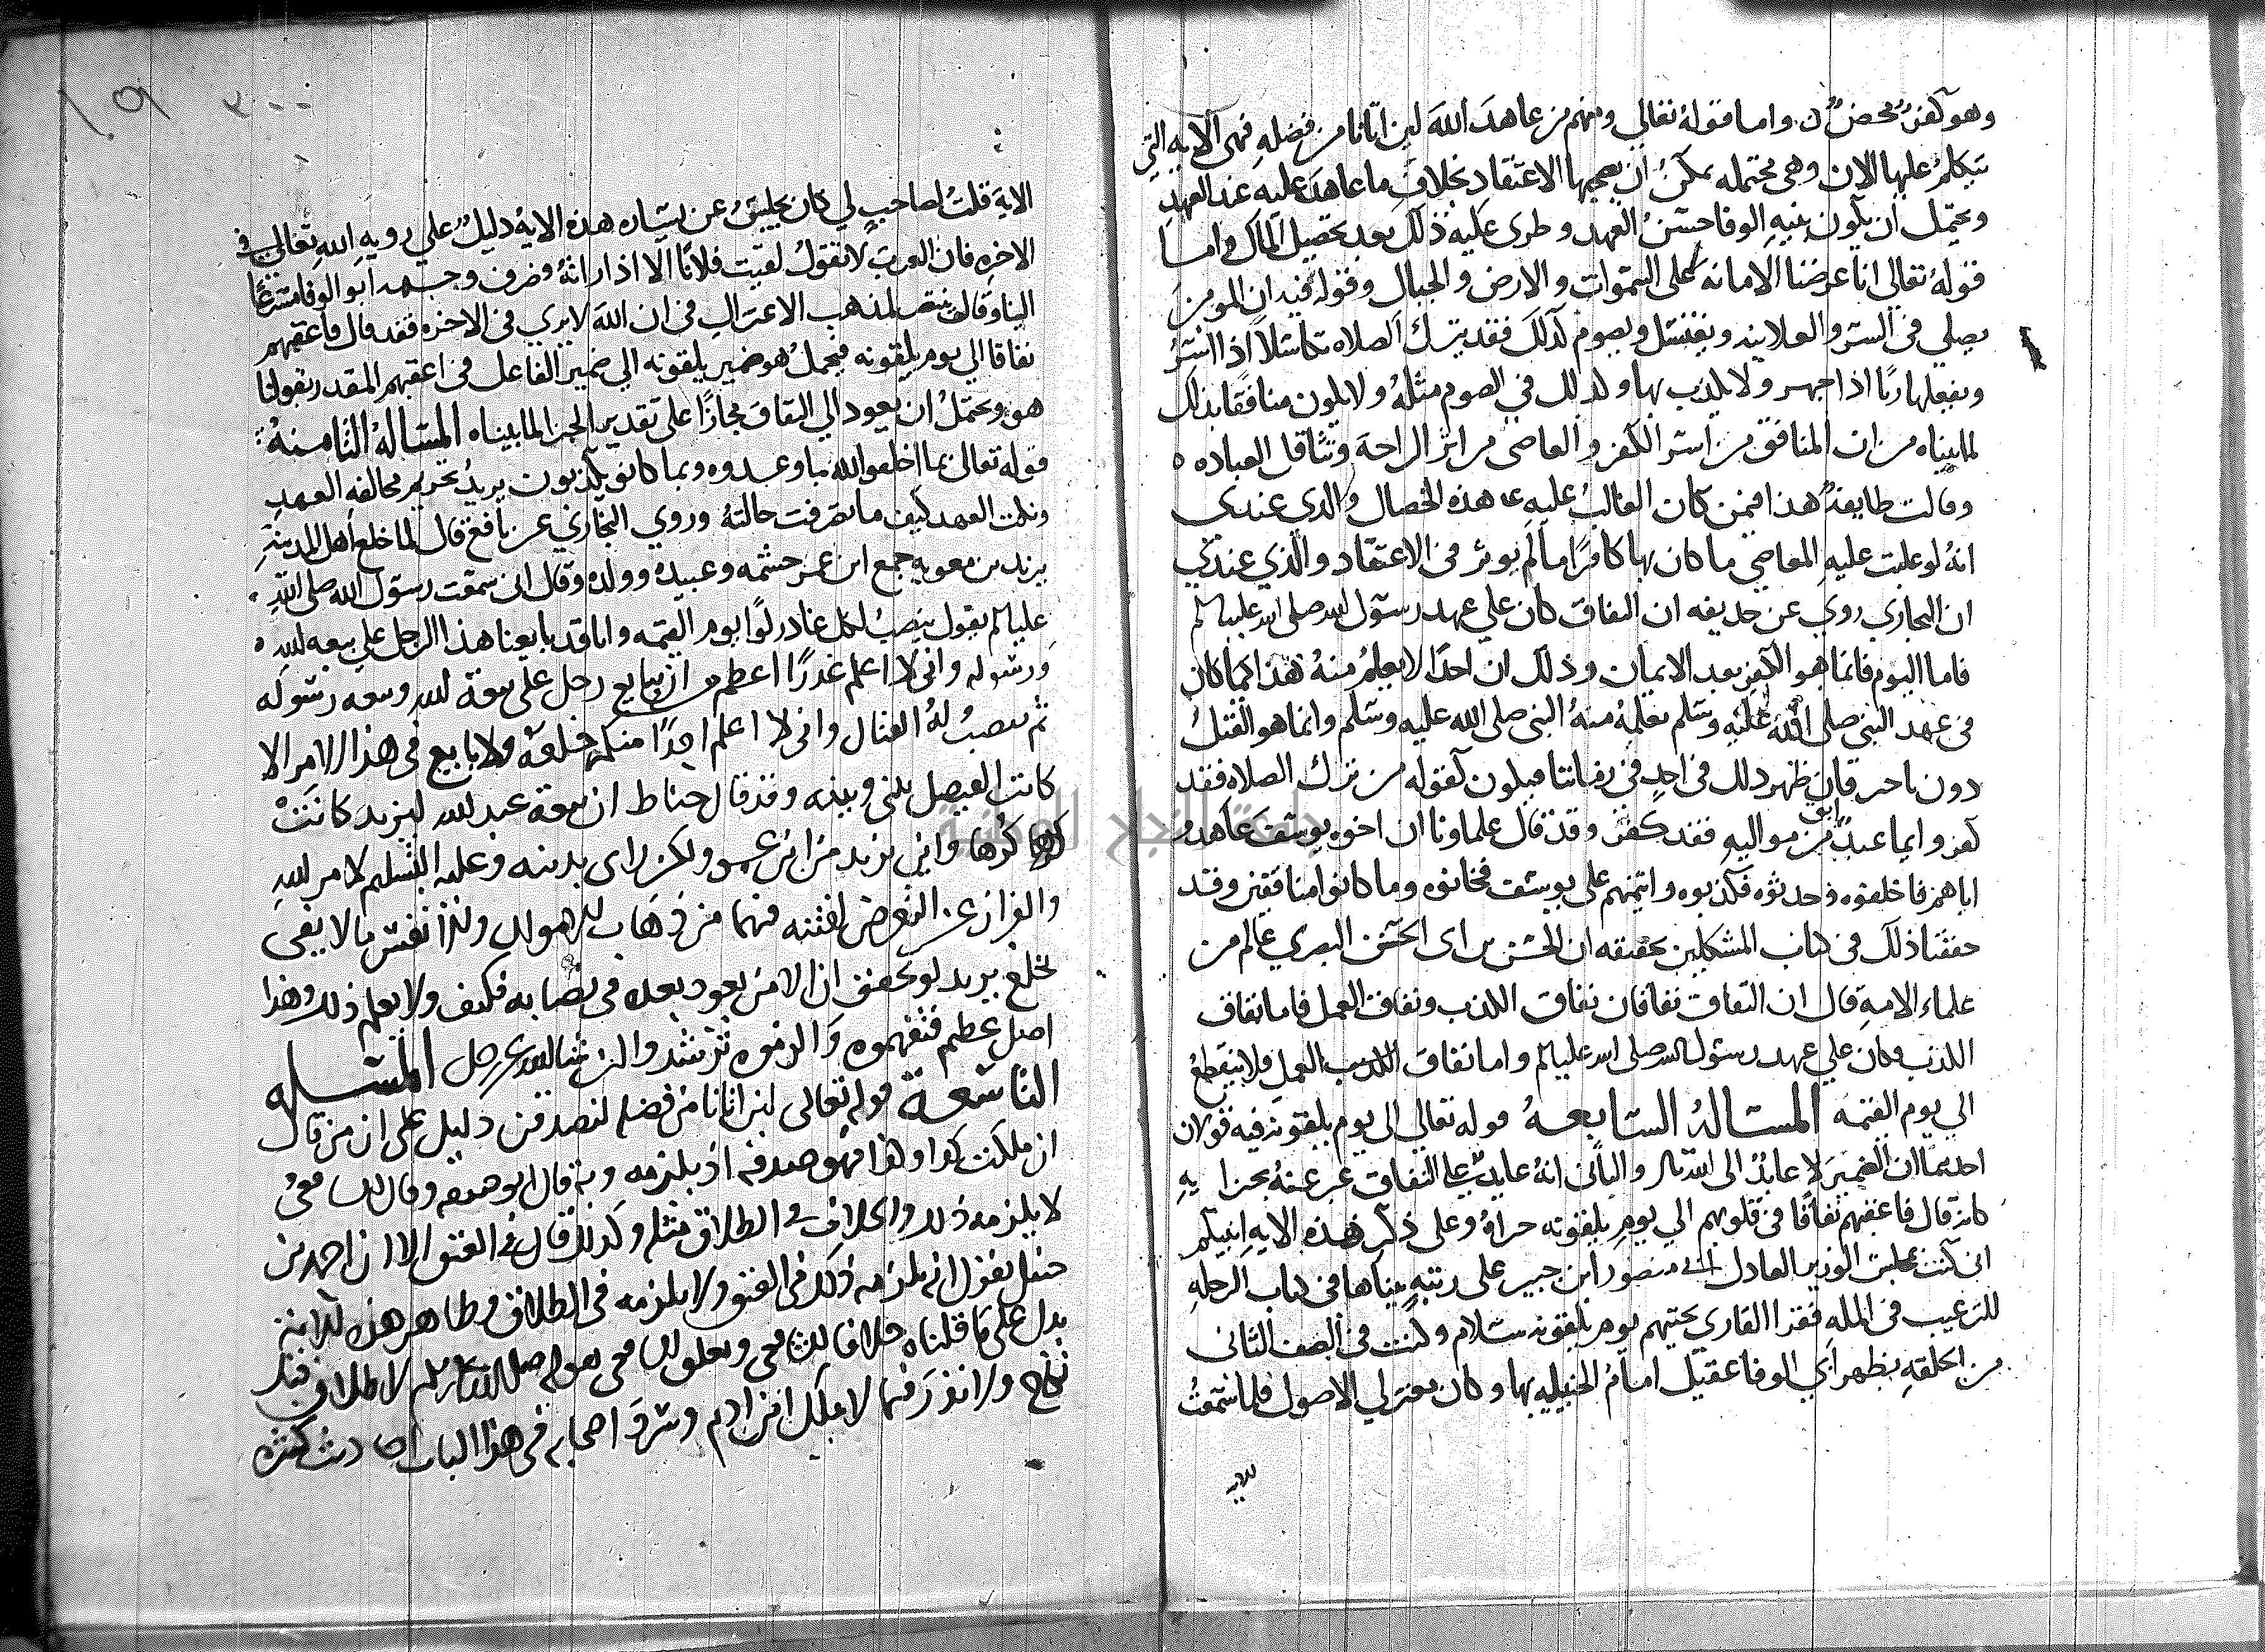 وهو كفر محض ن واما قوله تعالي ومنهم من عاهد الله لين اتانا من فضله فهي الايه التي
نتكلم عليها الان وهي محتمله يمكن ان يصحبها الاعتقاد بخلاف ما عاهد عليه عند العهد
ويحتمل ان يكون بنيه الوفا حسن العهد وطرى عليه ذلك بعد تحصيل المال واما
قوله تعالي انا عرضنا الامانه على السموات والارض والجبال وقوله فيه ان المومن
يصلي في السر والعلانيه ويغتسل ويصوم كذلك فقد يترك الصلاه تكاسلا اذا اسر
ويفعلها ريا اذا جهر ولا يكذب بها وكذلك في الصوم مثله ولا يكون منافقا بذلك
لما بيناه من ان المنافق من اسر الكفر والعاصي من اثر الراحة وتثاقل العباده ه
وقالت طايفة هذا فيمن كان الغالب عليه هذه الخصال والذي عندي
انه لو غلبت عليه المعاصي ما كان بها كافرا ما لم يوثر في الاعتقاد والذي عندي
ان البخاري روي عن حديفه ان النفاق كان علي عهد رسول الله صلى الله عليه وسلم
فاما اليوم فانما هو الكفر بعد الايمان وذلك ان احدا لا يعلم منه هذا كما كان
في عهد النبي صلى الله عليه وسلم يعلمه منه النبي صلى الله عليه وسلم وانما هو القتل
دون تاخير فان ظهر ذلك في احد في زماننا فيكون كقوله من ترك الصلاه فقد
كفر وايما عبد ابق من مواليه فقد كفر وقد قال علماونا ان اخوه يوسف عاهدو
اباهم فاخلفوه وحدثوه فكذبوه وايتمنهم على يوسف فخانوه وما كانوا منافقين وقد
حققنا ذلك في كتاب المشكلين بحقيقه ان الحسن بن ابي الحسن البصري عالم من
علماء الامه قال ان النفاق نفاقان نفاق الكذب ونفاق العمل فاما نفاق
الكذب فكان علي عهد رسول الله صلى الله عليه وسلم واما نفاق العمل فلا ينقطع
الي يوم القيمه المسالة السابعة قوله تعالي الي يوم يلقونه فيه قولان
احدهما ان الضمير عايد الى الله تعالى والثاني انه عايد علي النفاق عبر عنه بجزايه
كانه قال فاعقبهم نفاقا في قلوبهم الي يوم يلقونه جزاه وعلى ذكر هذه الايه انبيكم
اني كنت بمجلس الوزير العادل ابي منصور ابن جهير على رتبه بيناها في كتاب الرحله
للترغيب في المله فقرا القاري تحيتهم يوم يلقونه سلام وكنت في الصف الثاني
من الحلقه بظهر ابي الوفا عقيل امام الحنبليه بها وكان معتزلي الاصول فلما سمعت
للايه
الاية قلت لصاحب لي كان يجلس عن يساره هذه الاية دليل علي رويه الله تعالي في
الاخره فان العرب لا تقول لقيت فلانا الا اذا راته وصرف وجهه ابو الوفا مسرعا
الينا وقال ينتصر لمذهب الاعتزال في ان الله لا يري في الاخره فقد قال فاعقبهم
نفاقا الي يوم يلقونه فيجمل هو ضمير يلقونه الي ضمير الفاعل في اعقبهم المقدر بقولنا
هو ويحتمل ان يعود الي النفاق مجازا على تقدير الجزا لما بيناه المسالة الثامنة
قوله تعالي بما اخلفوا الله ما وعدوه وبما كانو يكذبون يريد تحريم مخالفه العهد
ونكث العهد كيف ما تصرفت حالته وروي البخاري عن نافع قال لما خلع اهل المدينه
يزيد بن معويه جمع ابن عمر حشمه وعبيده وولده وقال اني سمعت رسول الله صلى الله
عليه وسلم يقول ينصب لكل غادر لوا يوم القيمه وانا قد بايعنا هذا الرجل على بيعه الله
ورسوله واني لا اعلم غدرا اعظم من ان يبايع رجل على بيعة الله وبيعه رسوله
ثم ينصب له القتال واني لا اعلم احدا منكم خلعه ولا بايع في هذا الامر الا
كانت الفيصل بيني وبينه وقد قال حناط ان بيعة عبد الله ليزيد كانت
كرها واين يزيد من ابن عمر ولكن راى بدينه وعلمه التسليم لامر الله
والفرار عن التعرض لفتنه فيها من ذهاب الاموال والانفس ما لا يفي
بخلع يزيد لو تحقق ان الامر يعود بعده في نصابه فكيف ولا يعلم ذلك وهذا
اصل عظيم فتفهموه والزموه ترشدوا ان شا الله عز وجل المسئله
التاسعة قوله تعالى لين اتانا من فضله لنصدقن دليل على ان من قال
ان ملكت كذا وكذا فهو صدقه انه يلزمه وبه قال ابو حنيفه وقال الشافعي
لا يلزمه ذلك والخلاف في الطلاق مثله وكذلك قال في العتق الا ان احمد بن
حنبل يقول انه يلزمه ذلك في العتق ولا يلزمه في الطلاق وظاهر هذه الاية
يدل على ما قلناه خلافا للشافعي وتعلق الشافعي بقوله صلى الله عليه وسلم لا طلاق قبل
نكاح ولا نذر فيما لا يملك ابن ادم وسرد اصحابه في هذا الباب احاديث كثيره